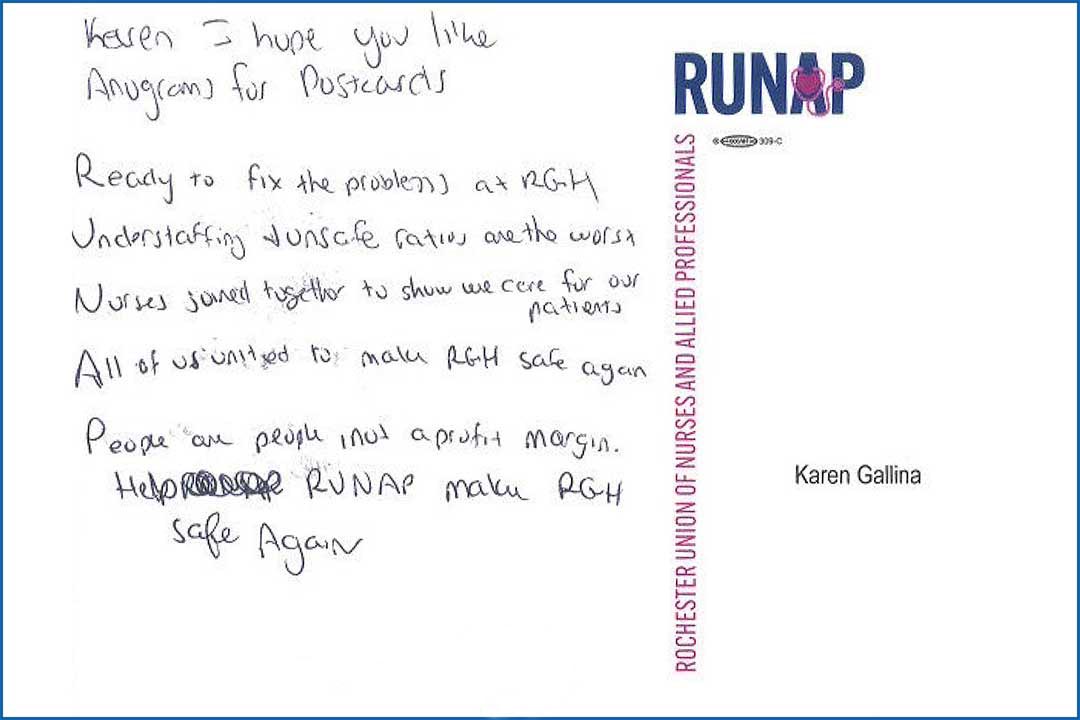 Karen I hope you like
Anugrams for Postcards
Ready to fix the problems at RGH
Understaffing + unsafe ratios are the worst
Nurses joined together to show we care for our
patients
All of us united to make RGH safe again
People are people not a profit margin.
Help RUNAP make RGH
safe Again
RUNAP
309-C
ROCHESTER UNION OF NURSES AND ALLIED PROFESSIONALS
Karen Gallina